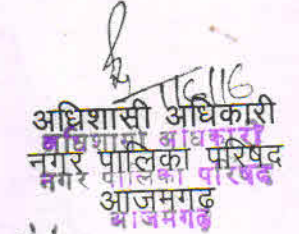 अधिशासी अधिकारी
अधिशासी अधिकारी
नगर पालिका परिषद
नगर पालिका परिषद
आजमगढ़
आजमगढ़